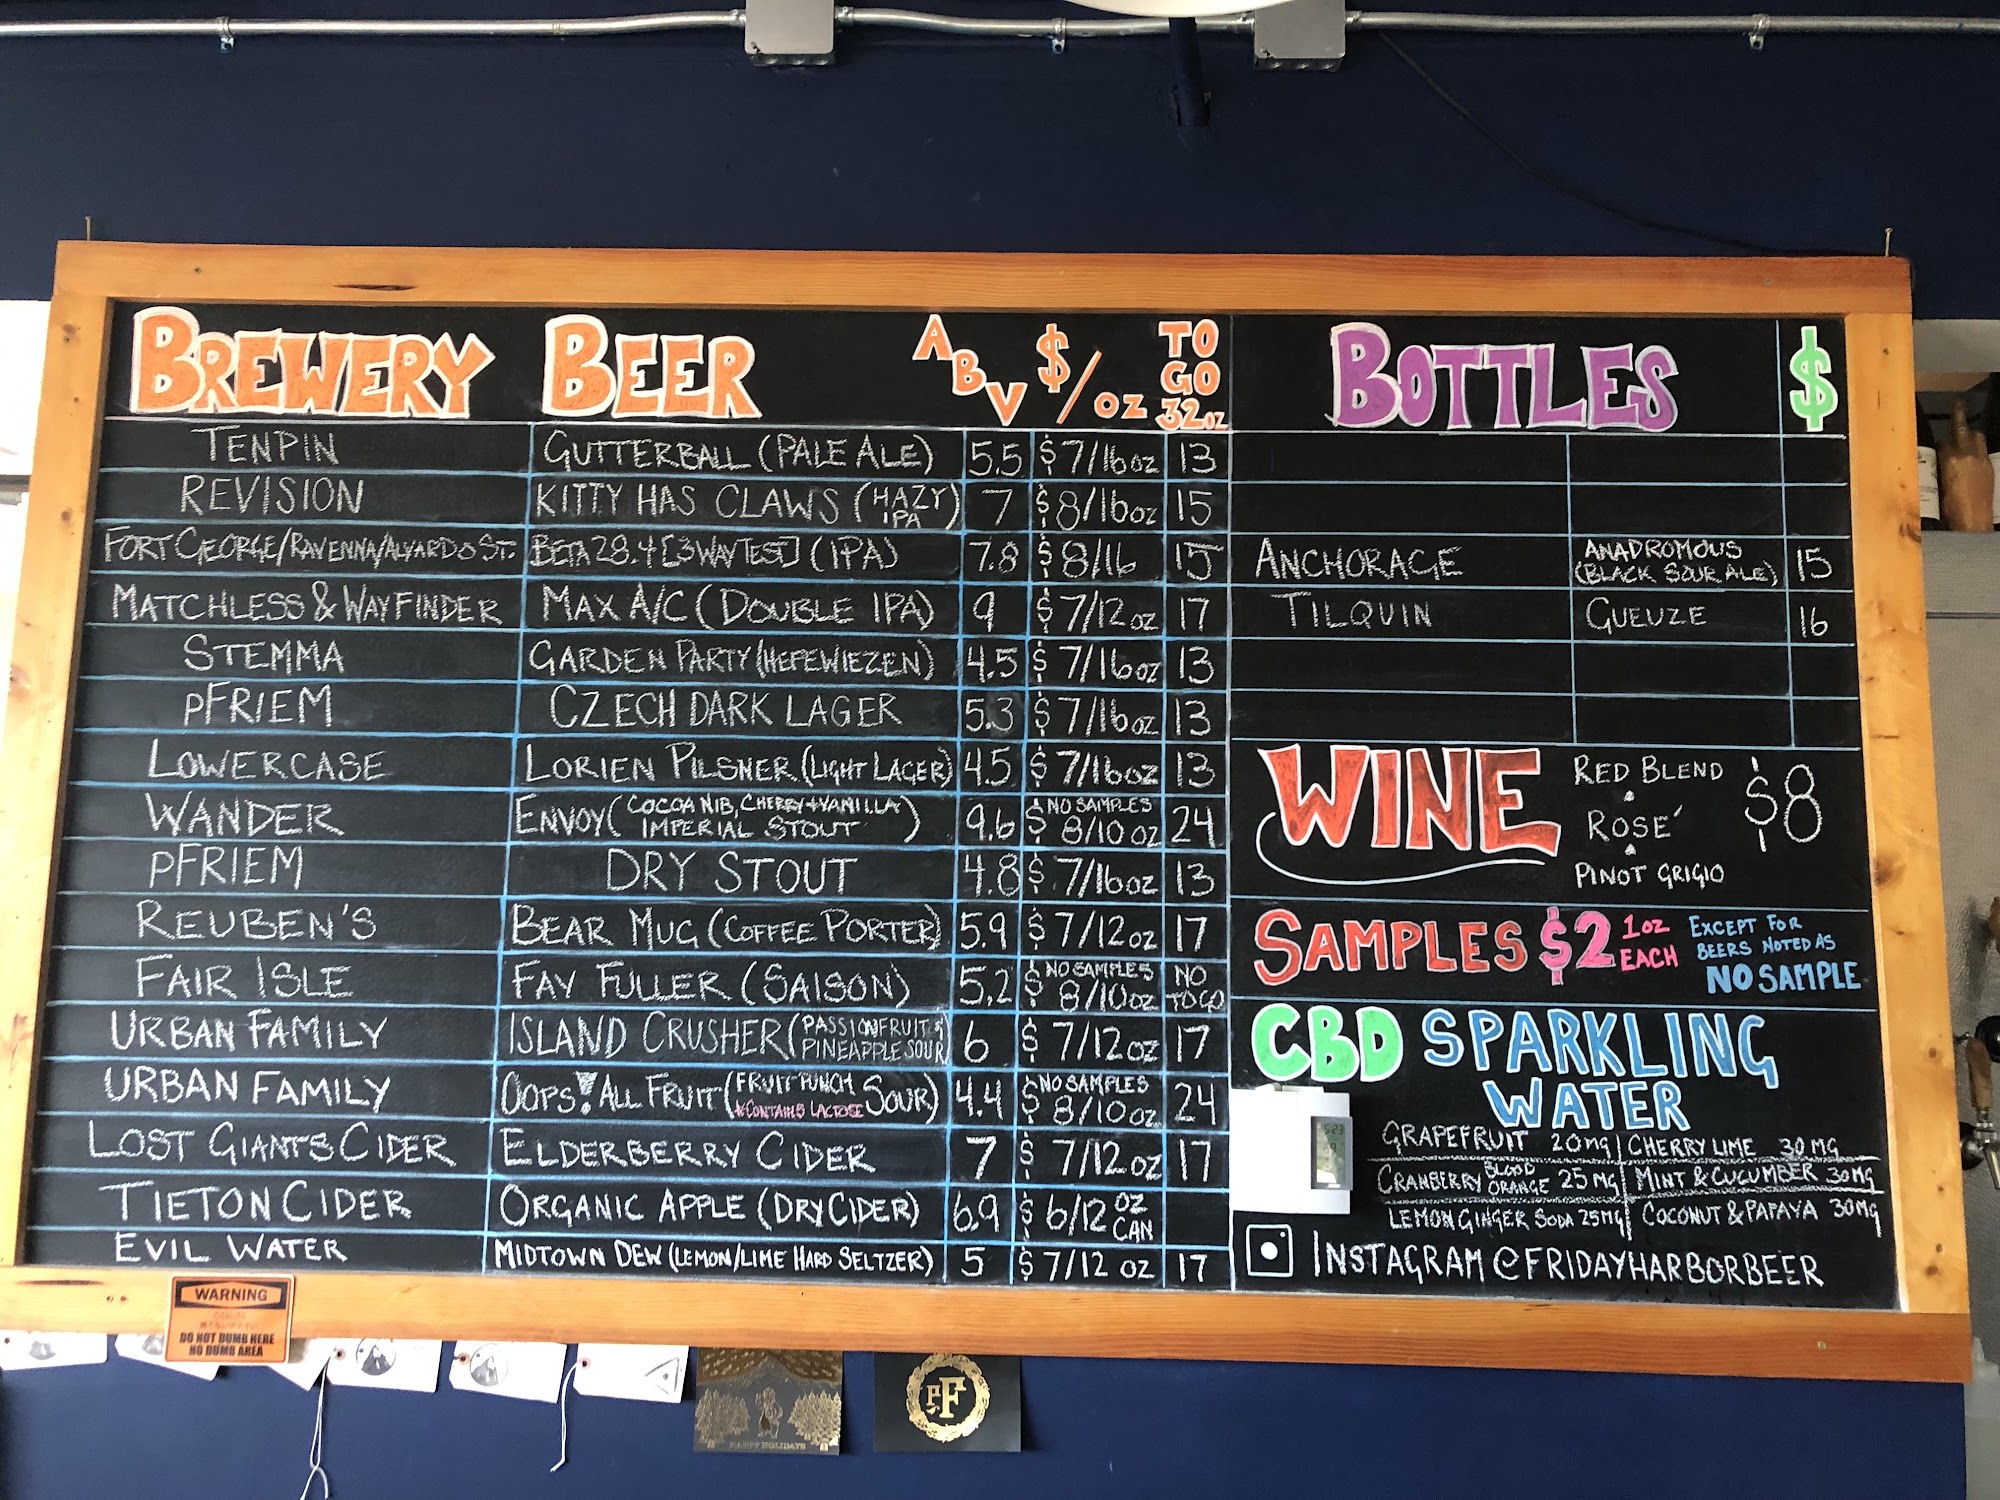 BREWERY BEER ABV $/OZ TO GO 32oz
TENPIN GUTTERBALL (PALE ALE) 5.5 $7/16oz 13
REVISION KITTY HAS CLAWS (HAZY IPA) 7 $8/16oz 15
FORT GEORGE/RAVENNA/ALVARADO ST. BETA 28.4 [3 WAY TEST] (IPA) 7.8 $8/16 15
MATCHLESS & WAYFINDER MAX A/C (DOUBLE IPA) 9 $7/12oz 17
STEMMA GARDEN PARTY (HEFEWIEZEN) 4.5 $7/16oz 13
PFRIEM CZECH DARK LAGER 5.3 $7/16oz 13
LOWERCASE LORIEN PILSNER (LIGHT LAGER) 4.5 $7/16oz 13
WANDER ENVOY (COCOA NIB, CHERRY + VANILLA IMPERIAL STOUT) 9.6 NO SAMPLES $8/10 oz 24
PFRIEM DRY STOUT 4.8 $7/16oz 13
REUBEN'S BEAR MUG (COFFEE PORTER) 5.9 $7/12oz 17
FAIR ISLE FAY FULLER (SAISON) 5.2 NO SAMPLES $8/10oz NO TO GO
URBAN FAMILY ISLAND CRUSHER (PASSIONFRUIT & PINEAPPLE SOUR 6 $7/12oz 17
URBAN FAMILY OOPS! ALL FRUIT (FRUIT PUNCH *CONTAINS LACTOSE SOUR) 4.4 NO SAMPLES $8/10oz 24
LOST GIANTS CIDER ELDERBERRY CIDER 7 $7/12oz 17
TIETON CIDER ORGANIC APPLE (DRY CIDER) 6.9 $6/12 OZ CAN
EVIL WATER MIDTOWN DEW (LEMON/LIME HARD SELTZER) 5 $7/12 oz 17
BOTTLES $
ANCHORAGE ANADROMOUS (BLACK SOUR ALE) 15
TILQUIN GUEUZE 16
WINE $8
RED BLEND
ROSÉ
PINOT GRIGIO
SAMPLES $2 1oz EACH
EXCEPT FOR
BEERS NOTED AS
NO SAMPLE
CBD SPARKLING
WATER
GRAPEFRUIT 20mg | CHERRY LIME 30 MG
CRANBERRY BLOOD ORANGE 25 MG | MINT & CUCUMBER 30MG
LEMON GINGER SODA 25MG | COCONUT & PAPAYA 30MG
INSTAGRAM @FRIDAYHARBORBEER
WARNING
DO NOT DUMB HERE
NO DUMB AREA
HAPPY HOLIDAYS
PF